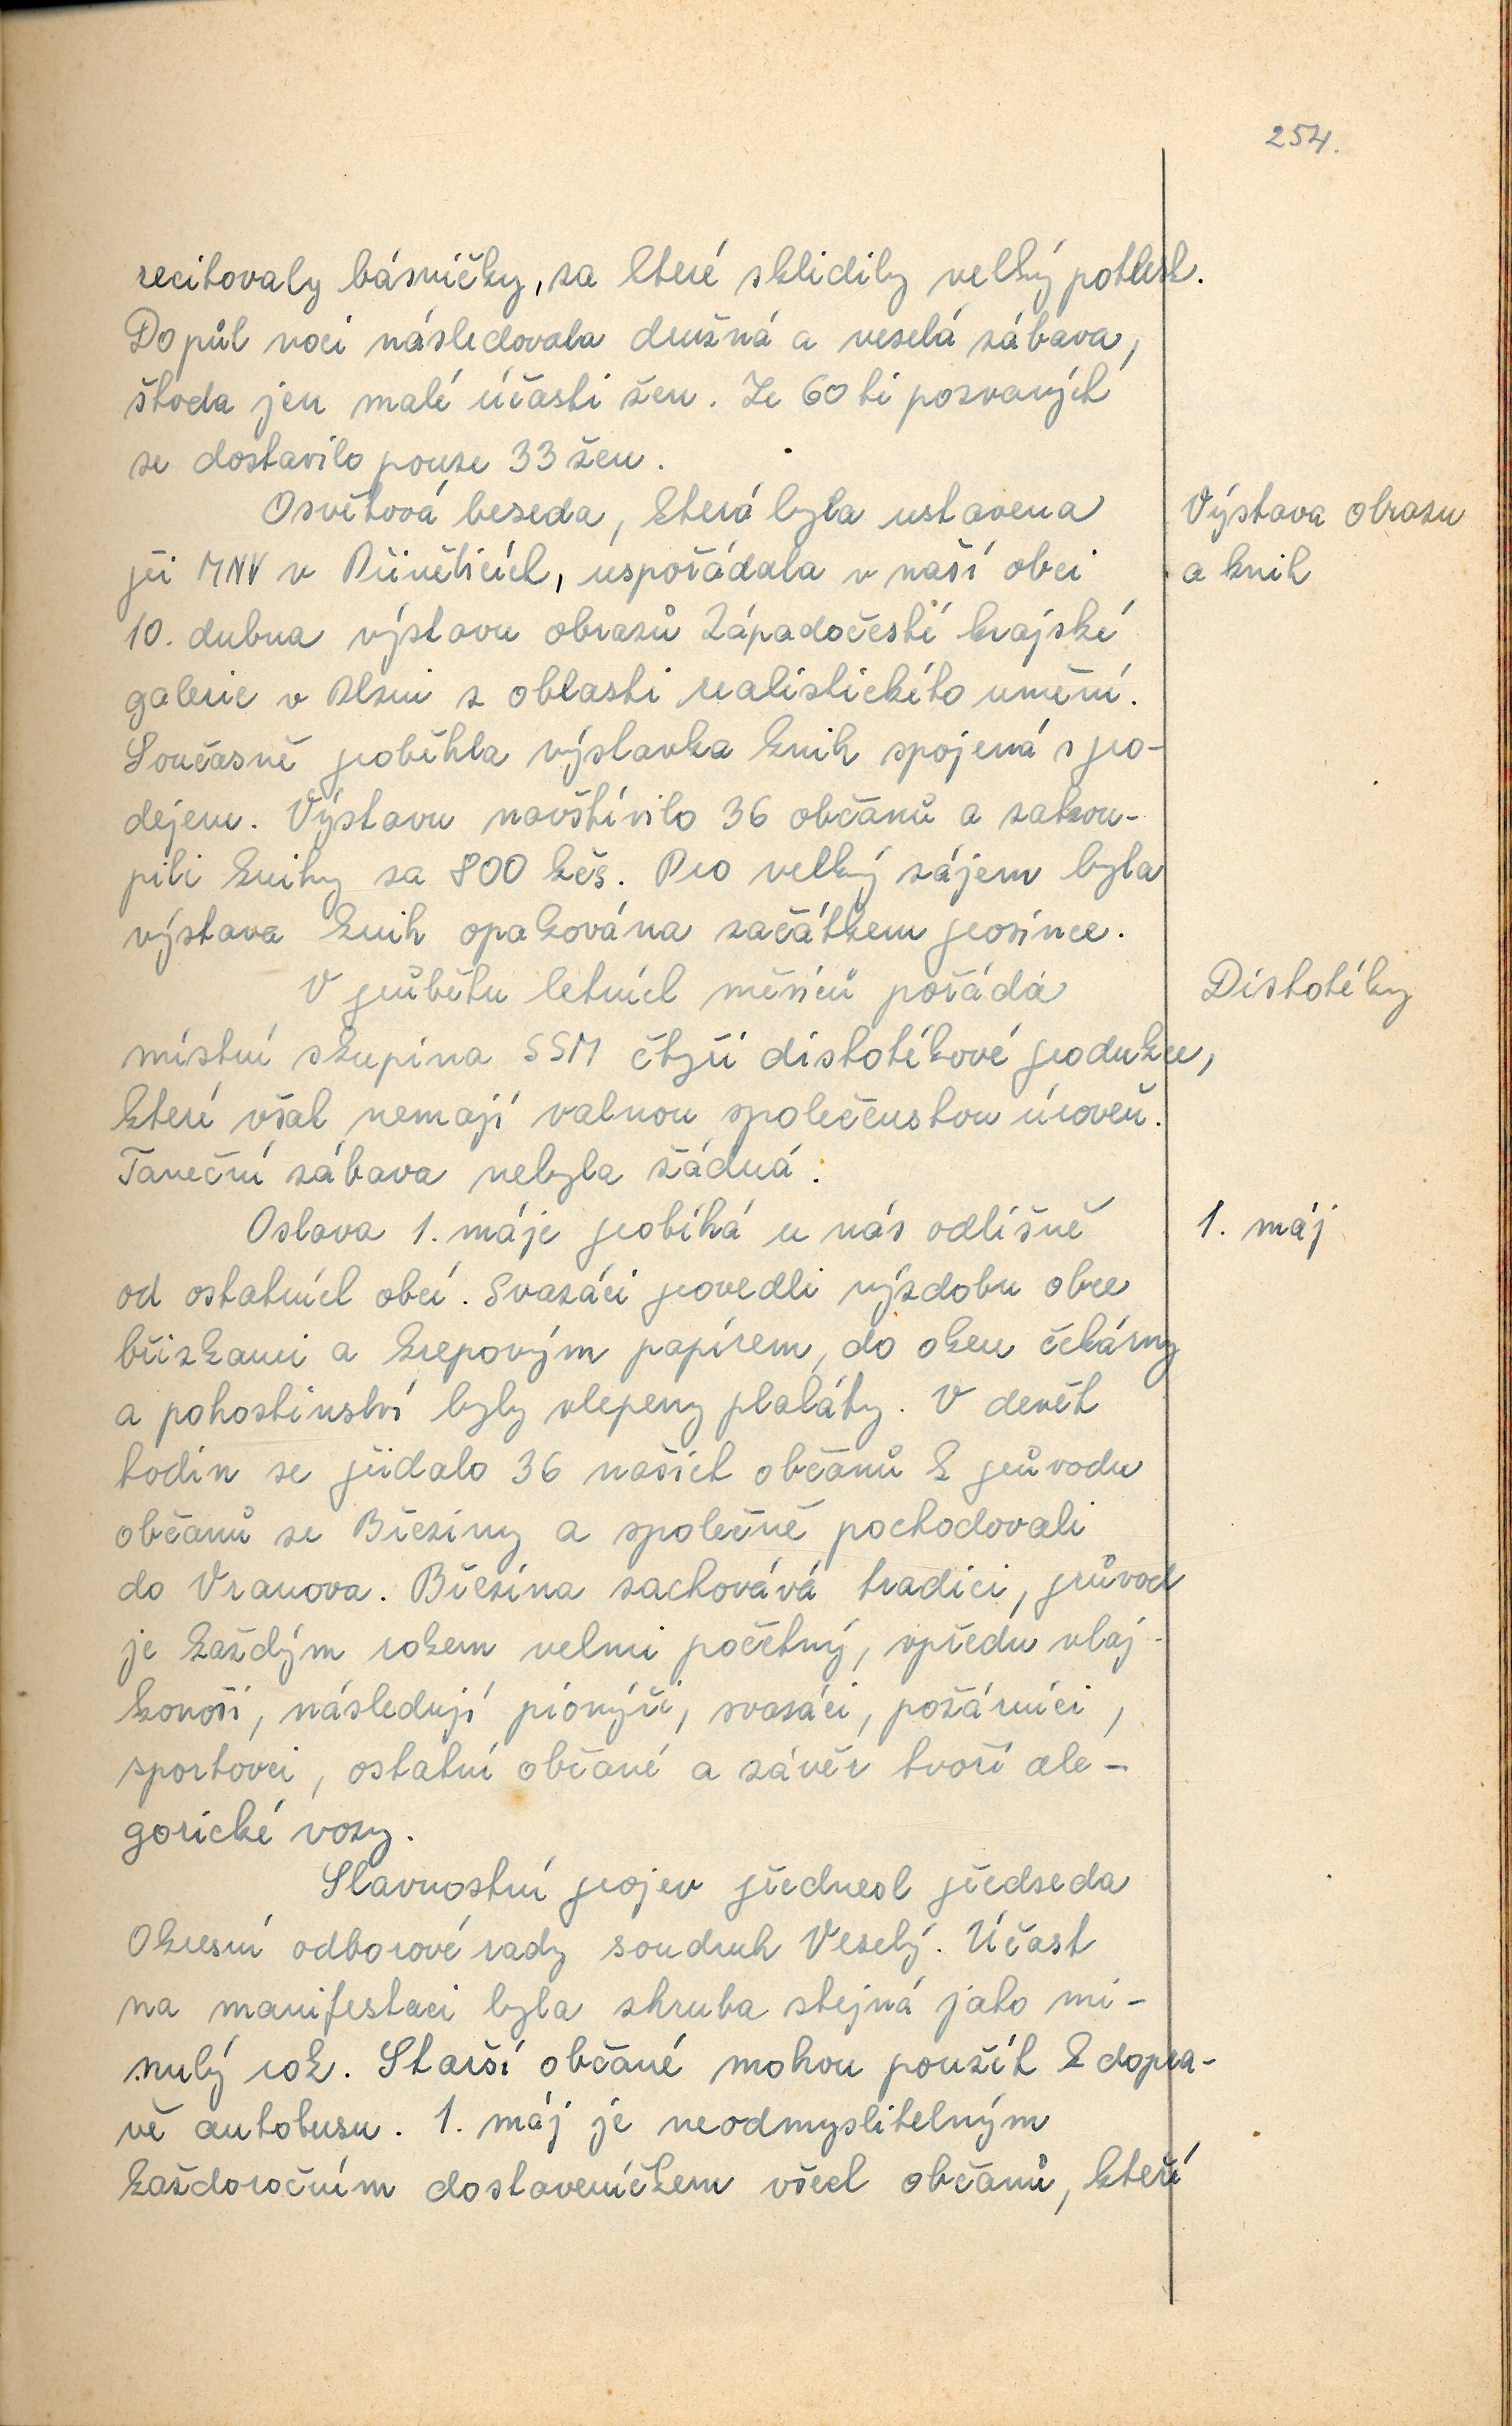 254.
recitovaly básničky, za které sklidily velký potlesk.
Do půl noci následovala družná a veselá zábava,
škoda jen malé účasti žen. Ze 60 ti pozvaných
se dostavilo pouze 33 žen.
Osvětová beseda, která byla ustavena
při MNV v Příchověticích, uspořádala v naší obci
10. dubna výstavu obrazů Západočeské krajské
galerie v Plzni z oblasti realistického umění.
Současně proběhla výstavka knih spojená s pro-
dejem. Výstavu navštívilo 36 občanů a zakou-
pili knihy za 800 kčs. Pro velký zájem byla
výstava knih opakována začátkem prosince.
V průběhu letních měsíců pořádá
místní skupina SSM čtyři diskotékové produkce,
které však nemají valnou společenskou úroveň.
Taneční zábava nebyla žádná.
Oslava 1. máje probíhá u nás odlišně
od ostatních obcí. Svazáci provedli výzdobu obce
břízkami a krepovým papírem, do oken čekárny
a pohostinství byly vlepeny plakáty. V devět
hodin se přidalo 36 našich občanů k průvodu
občanů ze Březiny a společně pochodovali
do Vranova. Březina zachovává tradici, průvod
je každým rokem velmi početný, vpředu vlaj-
konoši, následují pionýři, svazáci, požárníci,
sportovci, ostatní občané a závěr tvoří ale-
gorické vozy.
Slavnostní projev přednesl předseda
Okresní odborové rady soudruh Veselý. Účast
na manifestaci byla zhruba stejná jako mi-
nulý rok. Starší občané mohou použít k dopra-
vě autobusu. 1. máj je neodmyslitelným
každoročním dostaveníčkem všech občanů, kteří
Výstava obrazu
a knih
Diskotéky
1. máj